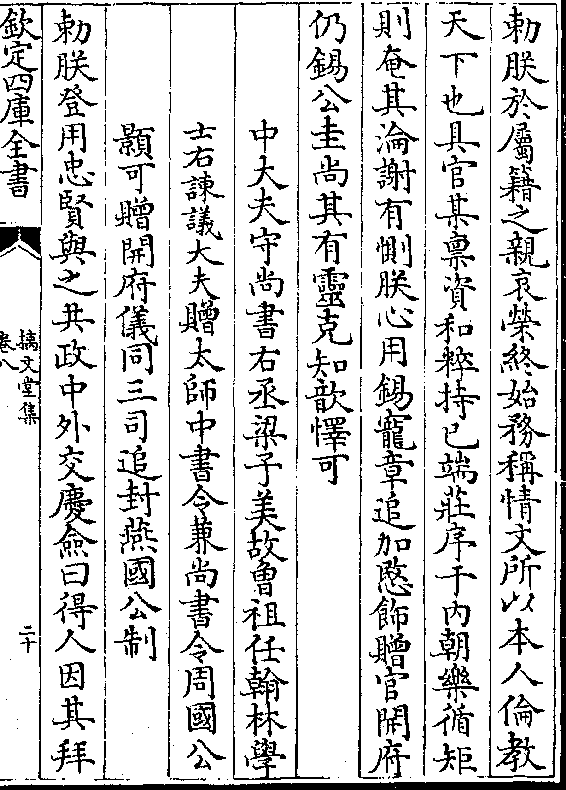 勅朕於屬籍之親哀榮終始務稱情文所以本人倫教
天下也具官某禀資和粹持已端莊序于内朝樂循矩
則奄其淪謝有惻朕心用錫寵章追加愍飾贈官開府
仍錫公圭尚其有靈克知歆懌可
中大夫守尚書右丞梁子美故曾祖任翰林學
士右諫議大夫贈太師中書令兼尚書令周國公
顥可贈開府儀同三司追封燕國公制
勅朕登用忠賢與之共政中外交慶僉曰得人因其拜
欽定四庫全書
摛文堂集
卷八
二十